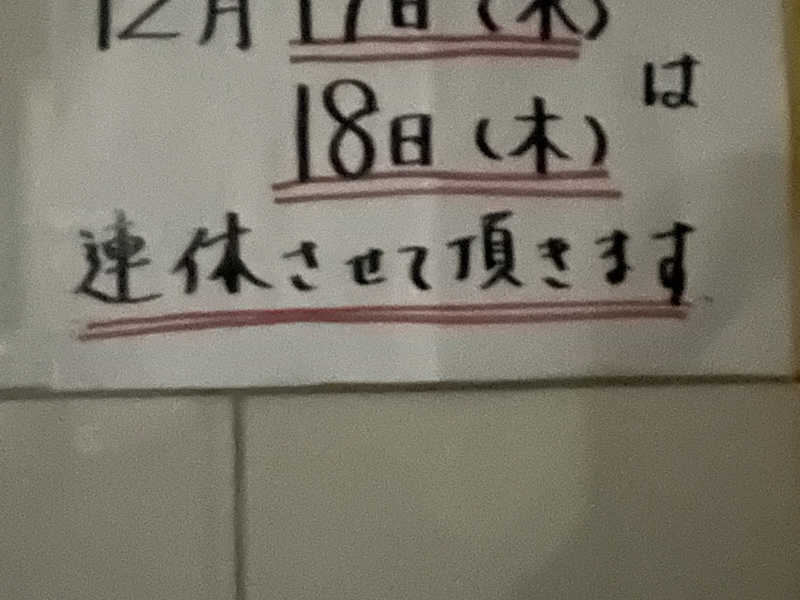 12月17日(水)
18日(木)は
連休させて頂きます